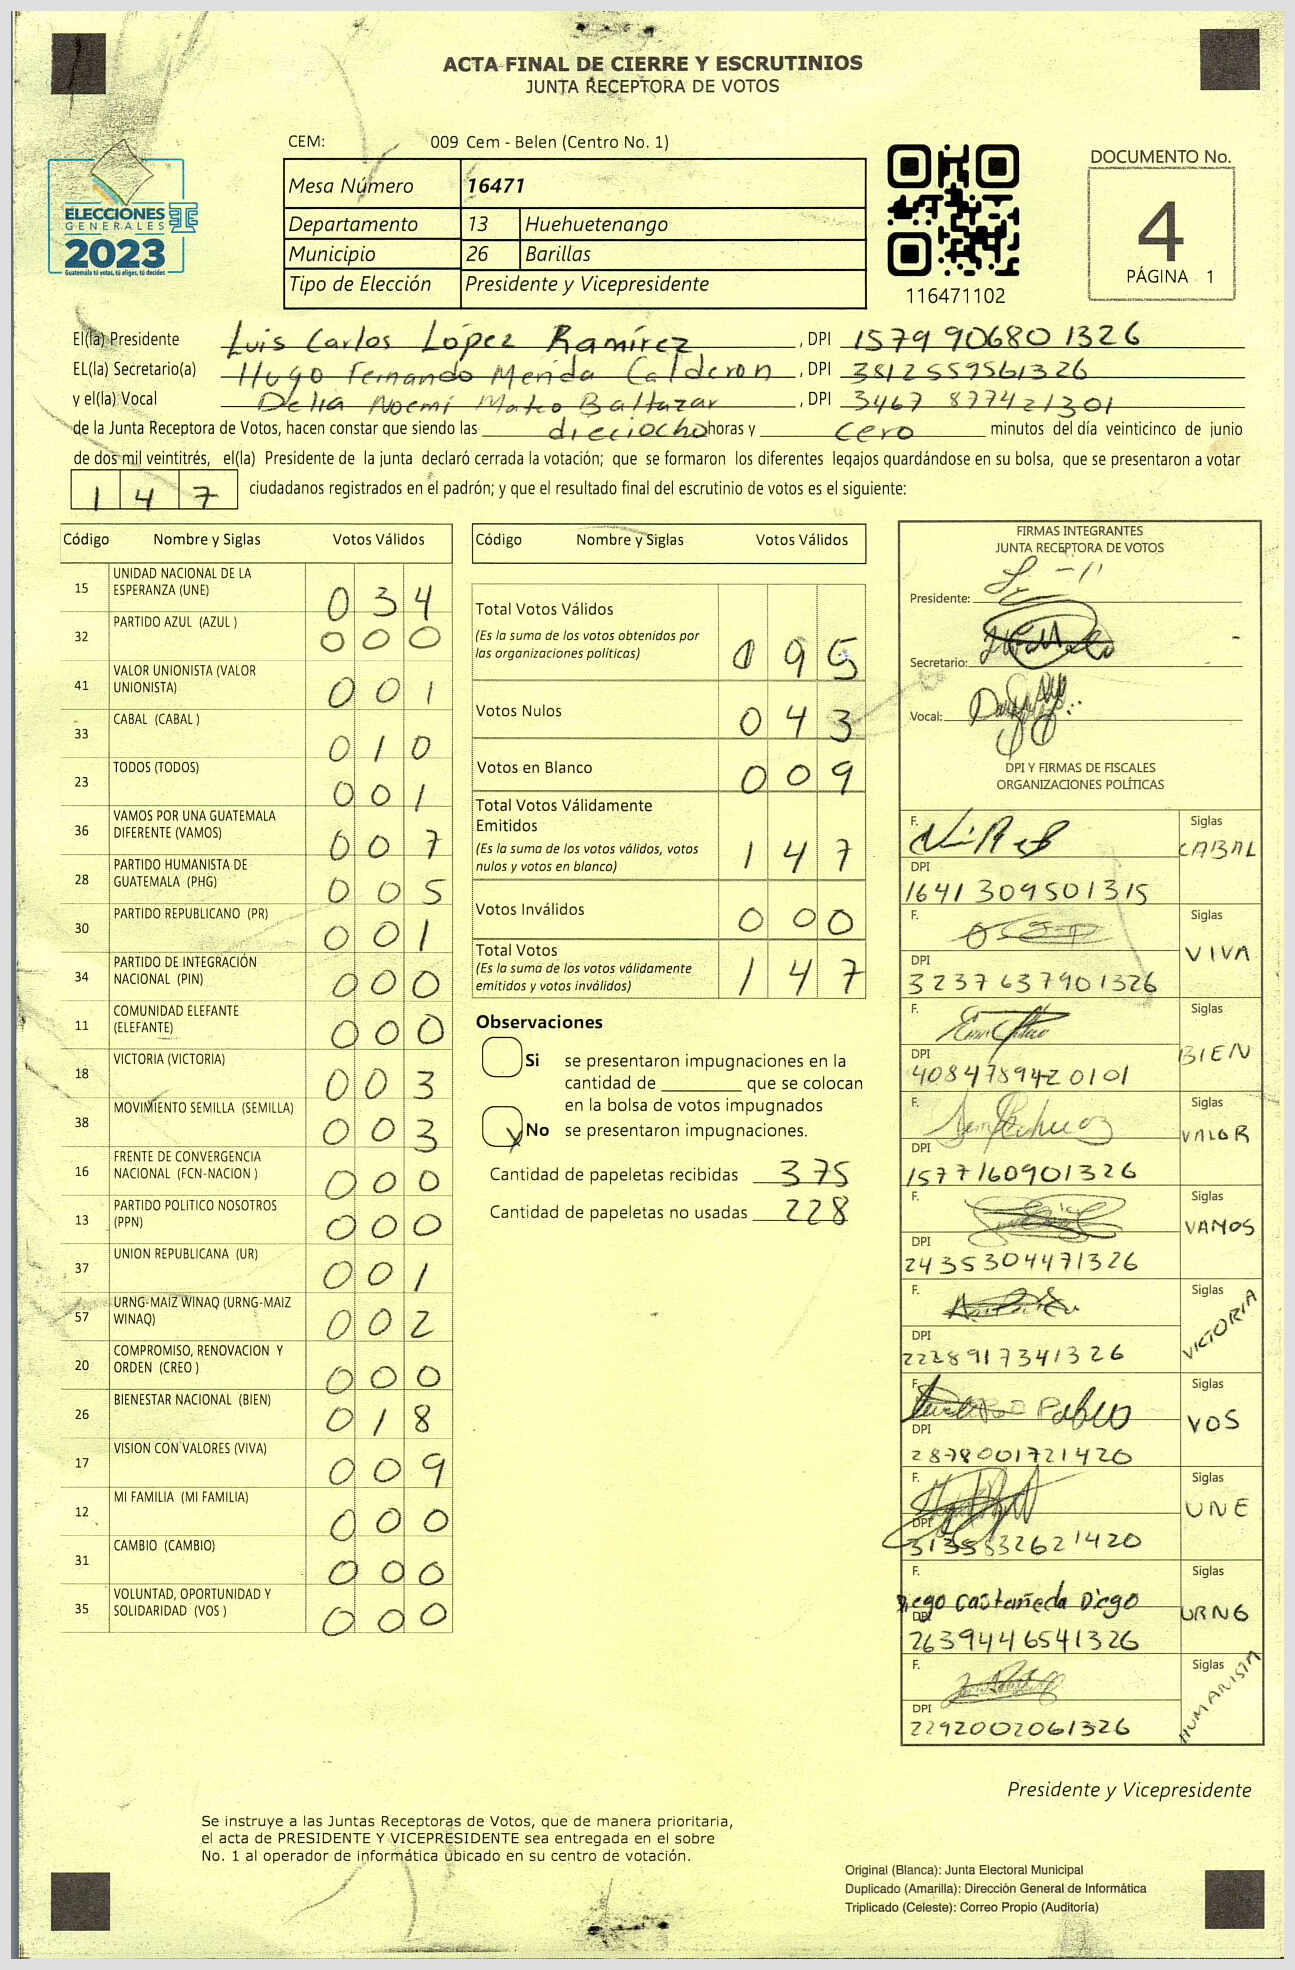 ACTA FINAL DE CIERRE Y ESCRUTINIOS
JUNTA RECEPTORA DE VOTOS
CEM: 009 Cem - Belen (Centro No. 1)
ELECCIONES
GENERALES
2023
Guatemala tú votas, tú eliges, tú decides
Mesa Número 16471
Departamento 13 Huehuetenango
Municipio 26 Barillas
Tipo de Elección Presidente y Vicepresidente
116471102
DOCUMENTO No.
4
PÁGINA 1
El(la) Presidente Luis Carlos López Ramírez, DPI 1579 90680 1326
EL(la) Secretario(a) Hugo Fernando Merida Calderon, DPI 3812559561326
y el(la) Vocal Delia Noemí Mateo Baltazar, DPI 3467 877421301
de la Junta Receptora de Votos, hacen constar que siendo las dieciocho horas y cero minutos del día veinticinco de junio
de dos mil veintitrés, el(la) Presidente de la junta declaró cerrada la votación; que se formaron los diferentes legajos guardándose en su bolsa, que se presentaron a votar
147 ciudadanos registrados en el padrón; y que el resultado final del escrutinio de votos es el siguiente:
Código Nombre y Siglas Votos Válidos
15 UNIDAD NACIONAL DE LA ESPERANZA (UNE) 034
32 PARTIDO AZUL (AZUL ) 000
41 VALOR UNIONISTA (VALOR UNIONISTA) 001
33 CABAL (CABAL ) 010
23 TODOS (TODOS) 001
36 VAMOS POR UNA GUATEMALA DIFERENTE (VAMOS) 007
28 PARTIDO HUMANISTA DE GUATEMALA (PHG) 005
30 PARTIDO REPUBLICANO (PR) 001
34 PARTIDO DE INTEGRACIÓN NACIONAL (PIN) 000
11 COMUNIDAD ELEFANTE (ELEFANTE) 000
18 VICTORIA (VICTORIA) 003
38 MOVIMIENTO SEMILLA (SEMILLA) 003
16 FRENTE DE CONVERGENCIA NACIONAL (FCN-NACION ) 000
13 PARTIDO POLITICO NOSOTROS (PPN) 000
37 UNION REPUBLICANA (UR) 001
57 URNG-MAIZ WINAQ (URNG-MAIZ WINAQ) 002
20 COMPROMISO, RENOVACION Y ORDEN (CREO ) 000
26 BIENESTAR NACIONAL (BIEN) 018
17 VISION CON VALORES (VIVA) 009
12 MI FAMILIA (MI FAMILIA) 000
31 CAMBIO (CAMBIO) 000
35 VOLUNTAD, OPORTUNIDAD Y SOLIDARIDAD (VOS ) 000
Código Nombre y Siglas Votos Válidos
Total Votos Válidos 095
(Es la suma de los votos obtenidos por
las organizaciones políticas)
Votos Nulos 043
Votos en Blanco 009
Total Votos Válidamente
Emitidos 147
(Es la suma de los votos válidos, votos
nulos y votos en blanco)
Votos Inválidos 000
Total Votos 147
(Es la suma de los votos válidamente
emitidos y votos inválidos)
Observaciones
Si se presentaron impugnaciones en la
cantidad de ________ que se colocan
en la bolsa de votos impugnados
X No se presentaron impugnaciones.
Cantidad de papeletas recibidas 375
Cantidad de papeletas no usadas 228
FIRMAS INTEGRANTES
JUNTA RECEPTORA DE VOTOS
Presidente:
Secretario:
Vocal:
DPI Y FIRMAS DE FISCALES
ORGANIZACIONES POLÍTICAS
F. Siglas CABAL
DPI 1641 309501315
F. Siglas VIVA
DPI 3237637901326
F. Siglas BIEN
DPI 4084789420101
F. Siglas VALOR
DPI 1577160901326
F. Siglas VAMOS
DPI 2435304471326
F. Siglas VICTORIA
DPI 2228917341326
F. Pablo Siglas VOS
DPI 2878001721420
F. Siglas UNE
DPI
F. Diego Castañeda Diego Siglas URNG
DPI 2639446541326
F. Siglas HUMANISTA
DPI 2292002061326
Presidente y Vicepresidente
Se instruye a las Juntas Receptoras de Votos, que de manera prioritaria,
el acta de PRESIDENTE Y VICEPRESIDENTE sea entregada en el sobre
No. 1 al operador de informática ubicado en su centro de votación.
Original (Blanca): Junta Electoral Municipal
Duplicado (Amarilla): Dirección General de Informática
Triplicado (Celeste): Correo Propio (Auditoría)